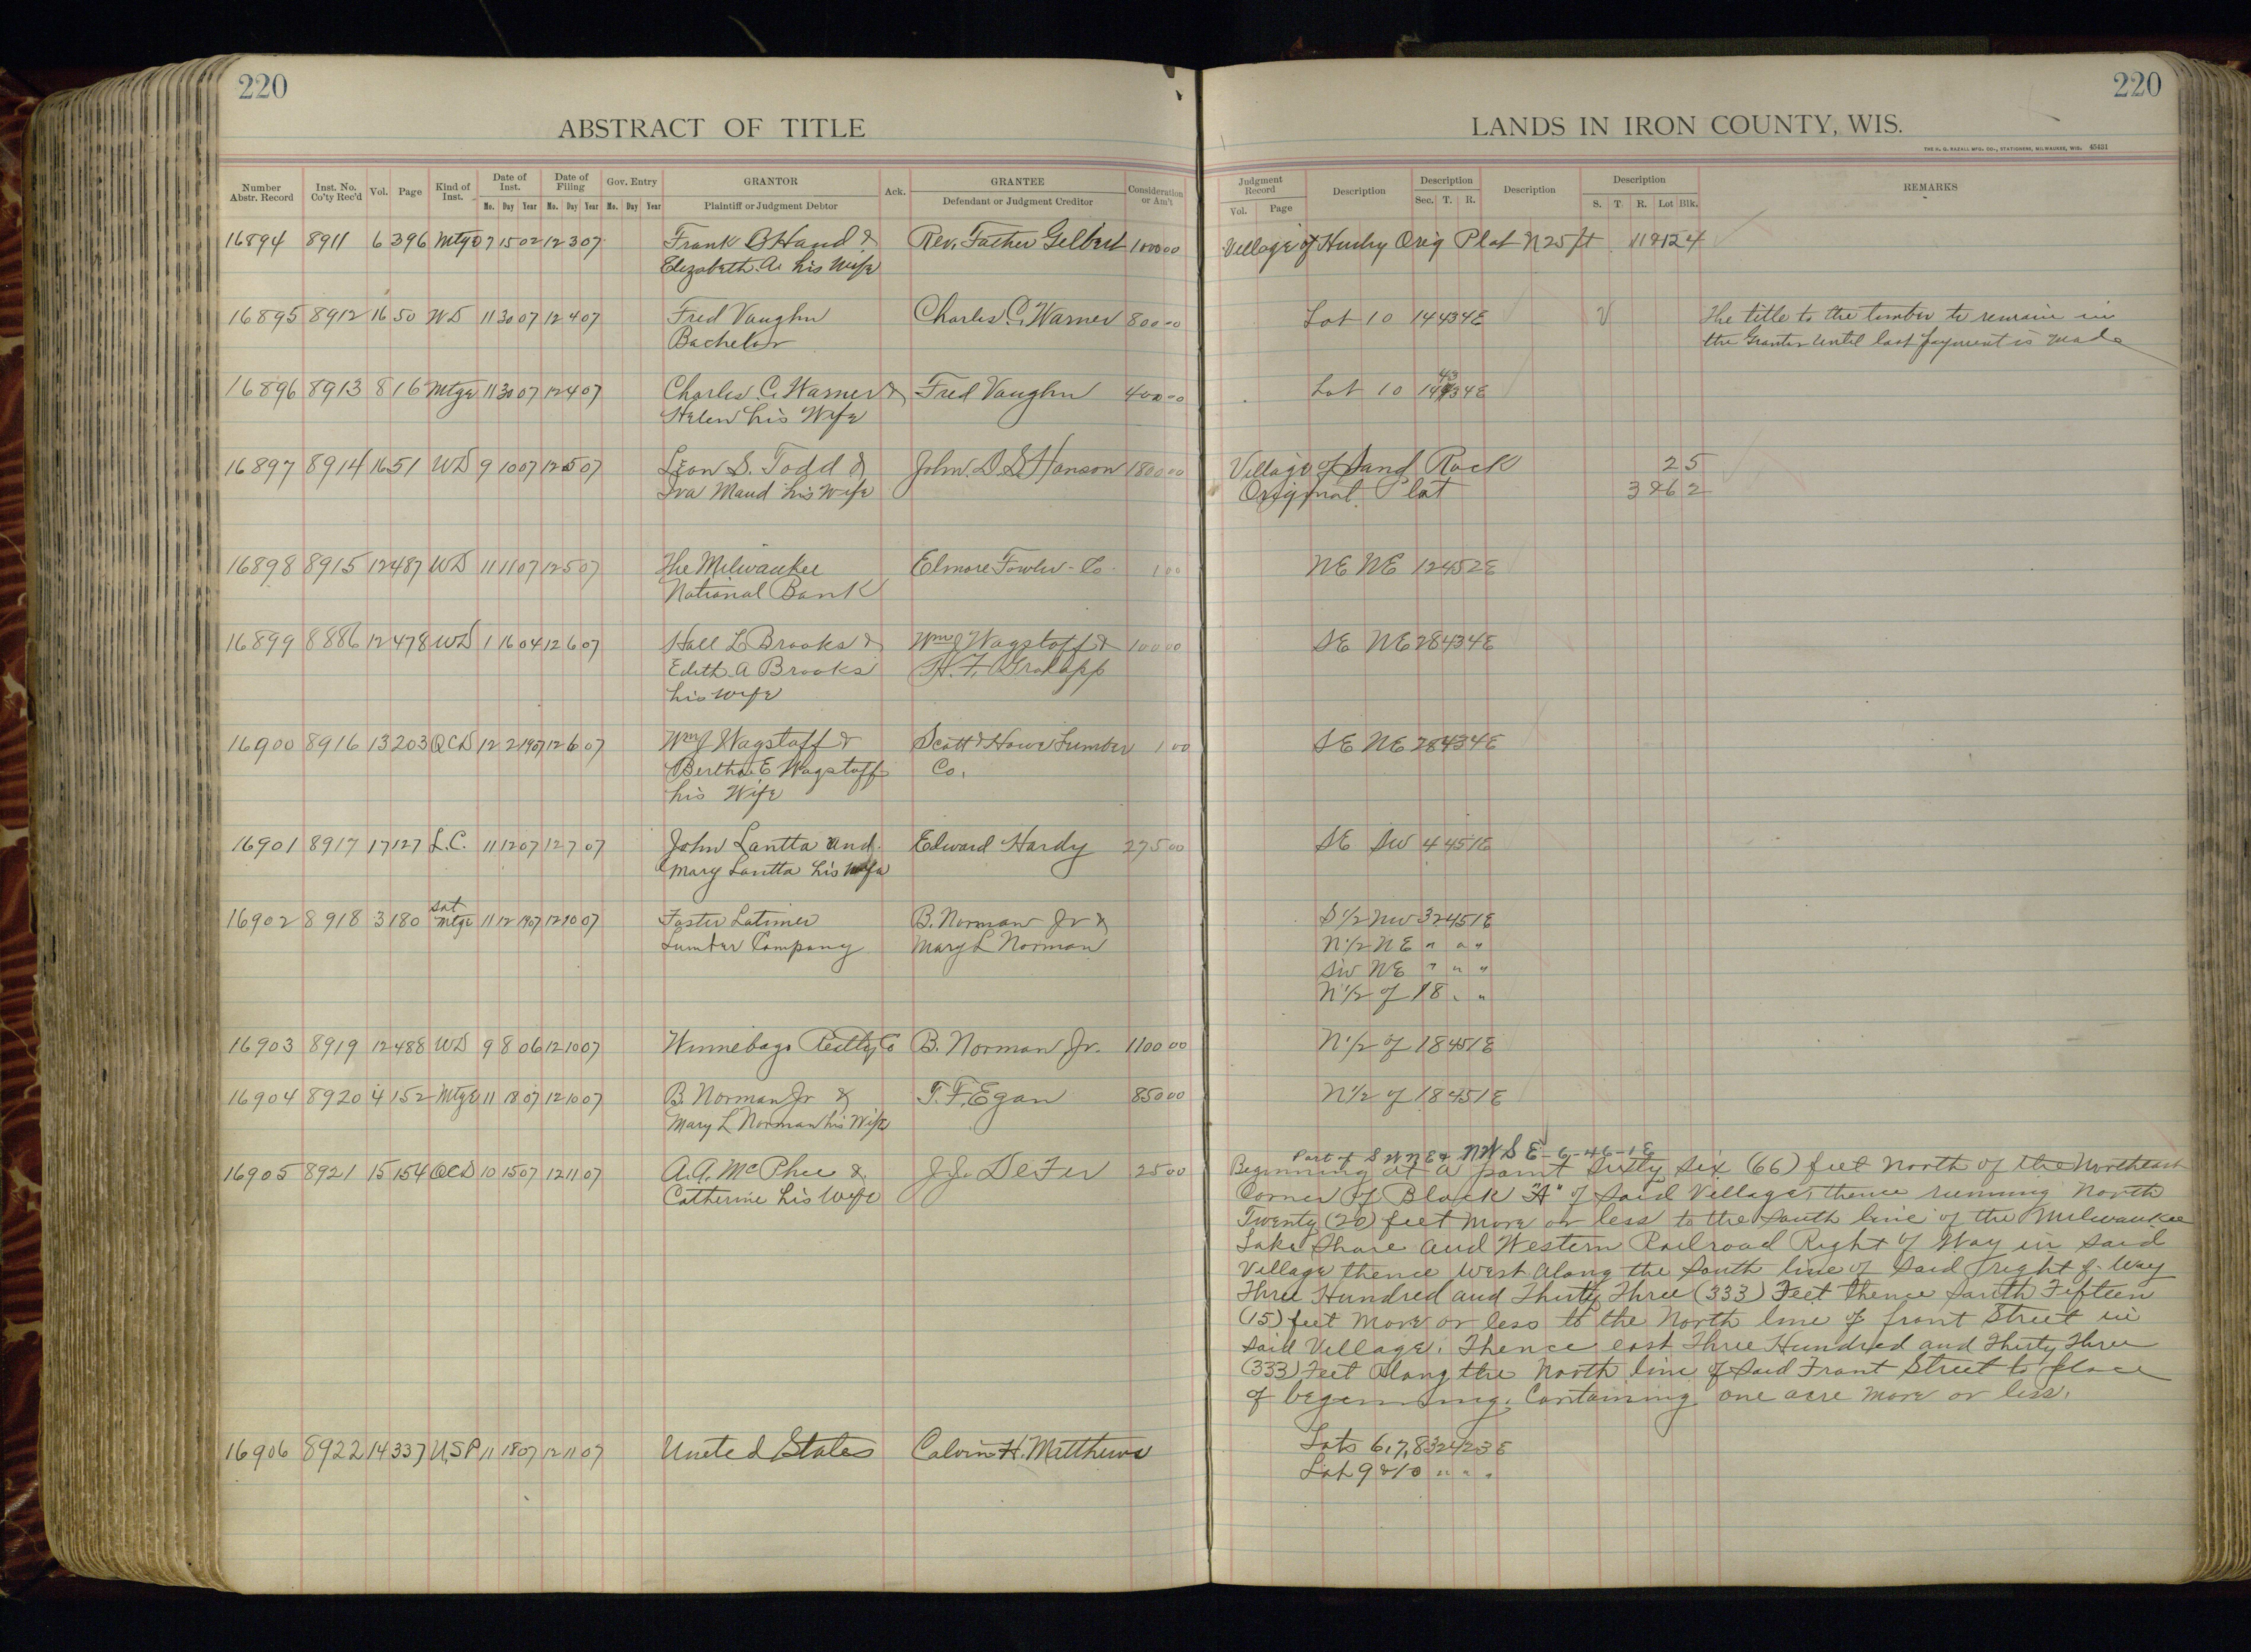 220
220
ABSTRACT OF TITLE
LANDS IN IRON COUNTY, WIS.
THE H. G. RAZALL MFG. CO., STATIONERS, MILWAUKEE, WIS. 45431
Number Abstr. Record Inst. No. Co'ty Rec'd Vol. Page Kind of Inst. Date of Inst. Mo. Day Year Date of Filing Mo. Day Year Gov. Entry Mo. Day Year GRANTOR Plaintiff or Judgment Debtor Ack. GRANTEE Defendant or Judgment Creditor Consideration or Am't
Judgment Record Vol. Page Description Description Sec. T. R. Description Description S. T. R. Lot Blk. REMARKS
16894 8911 6 396 Mtge 7 15 02 12 3 07 Frank B Hand & Rev. Father Gilbert 1000 00 Village of Hurley Orig Plat N 25 ft 4
Elizabeth A. his Wife
16895 8912 16 50 WD 11 30 07 12 4 07 Fred Vaughn Charles C. Warner 800 00 Lot 10 14 43 4E The title to the timber to remain in
Bachelor the Grantor until last payment is made
16896 8913 8 16 Mtge 11 30 07 12 4 07 Charles C. Warner & Fred Vaughn 400 00 Lot 10 14 43 4E
Helen his Wife
16897 8914 16 51 WD 9 10 07 12 5 07 Leon S. Todd & John D S Hanson 1800 00 Village of Sand Rock 2 5
Iva Maud his Wife Original Plat 3&6 2
16898 8915 12 487 WD 11 11 07 12 5 07 The Milwaukee Elmore Fowler Co. 1 00 NE NE 12 45 2E
National Bank
16899 8886 12 478 WD 1 16 04 12 6 07 Hall L Brooks & Wm J Wagstaff & 100 00 SE NE 28 43 4E
Edith A Brooks H. F.
his Wife
16900 8916 13 203 QCD 12 2 1907 12 6 07 Wm J Wagstaff & Scott & Howe Lumber 1 00 SE NE 28 43 4E
Bertha E Wagstaff Co.
his Wife
16901 8917 17 127 L.C. 11 12 07 12 7 07 John Lantta and Edward Hardy 275 00 SE SW 4 45 1E
Mary Lantta his Wife
16902 8918 3 180 Sat Mtge 11 12 1907 12 10 07 Foster Latimer B. Norman Jr & S 1/2 NW 32 45 1E
Lumber Company Mary L Norman N 1/2 NE " " "
SW NE " " "
N 1/2 of 18 " "
16903 8919 12 488 WD 9 8 06 12 10 07 Winnebago Realty Co B. Norman Jr. 1100 00 N 1/2 of 18 45 1E
16904 8920 4 152 Mtge 11 18 07 12 10 07 B Norman Jr & T. F. Egan 850 00 N 1/2 of 18 45 1E
Mary L Norman his Wife
Part of S W N E & N W S E - 6 - 46 - 1 E
16905 8921 15 154 QCD 10 15 07 12 11 07 A. A. McPhee & J. J. DeFer 25 00 Beginning at a point Sixty Six (66) feet North of the Northeast
Catherine his Wife Corner of Block "A" of Said Village, thence running North
Twenty (20) feet more or less to the South line of the Milwaukee
Lake Shore and Western Railroad Right of Way in Said
Village thence West Along the South line of Said right of Way
Three Hundred and Thirty Three (333) Feet thence South Fifteen
(15) feet more or less to the North line of front Street in
Said Village. Thence east Three Hundred and Thirty Three
(333) Feet Along the North line of Said Front Street to place
of beginning. Containing one acre more or less.
16906 8922 14 337 U.S.P 11 18 07 12 11 07 United States Calvin H. Matthews Lots 6,7,8 32 42 3E
Lot 9 & 10 " " "